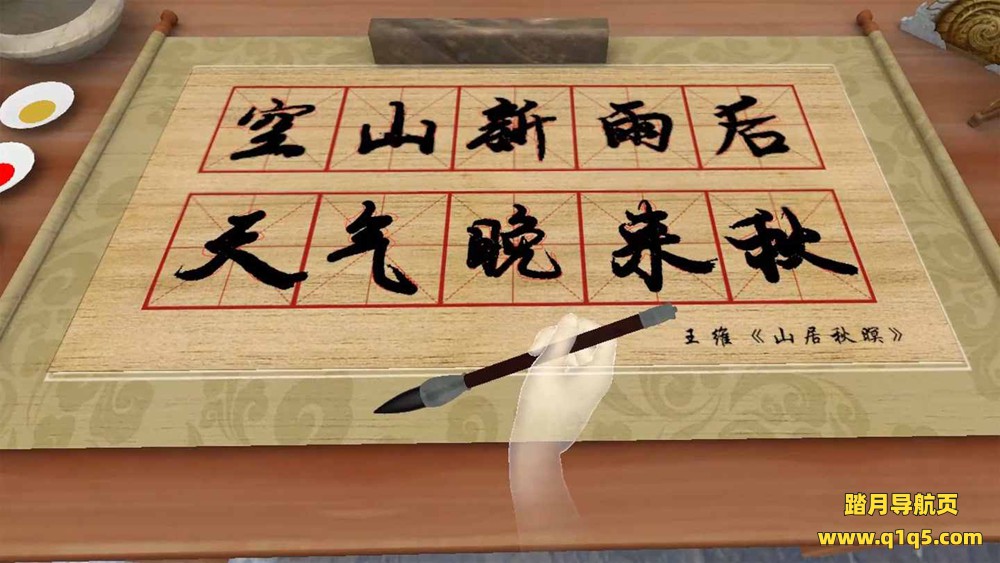 空山新雨后
天气晚来秋
王维《山居秋暝》
踏月导航页
www.q1q5.com